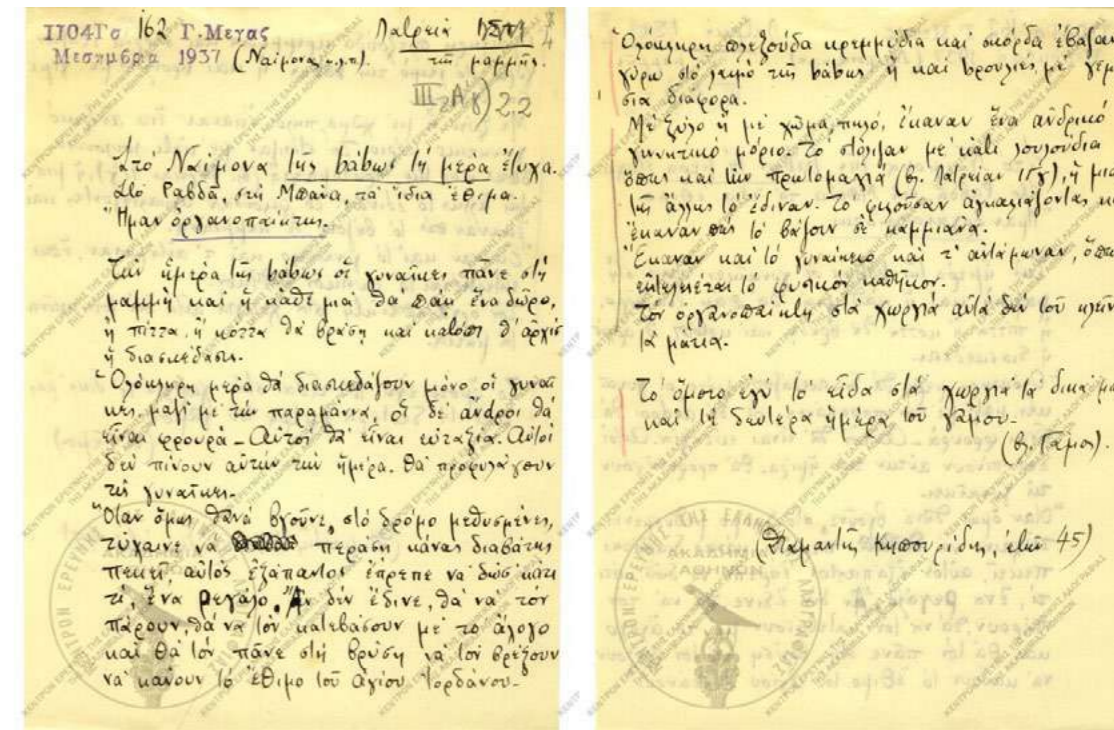 1104Γα 162 Γ. Μεγας
Μεσημβρια 1937 (Ναίμονα κ.λ.π.).
Λατρεία
τῆς μαμμῆς.
III₂ Α γ) 22
Στό Ναίμονα τῆς bάbως τή μερα ἔτυχα.
Στό Ραβδᾶ, στή Μπάνα, τά ἴδια ἔθιμα.
Ἤμαν ὀργανοπαίκτης.
Τήν ἡμερα τῆς bάbως οἱ γυναῖκες πᾶνε στή
μαμμή καί ἡ κάθε μιά θά πάη ἕνα δῶρο,
ἤ πίττα, ἤ κόττα θά βράση καί κατόπι θ' ἀρχίσ
ἡ διασκέδασι.
Ὁλόκληρη μερα θά διασκεδάζουν μόνο οἱ γυναῖ
κες, μαζί με τήν παραμάννα, οἱ δέ ἄνdροι θά
εἶναι φρουρά - Αὐτοί θά εἶναι εὐταξία. Αὐτοί
δέν πίνουν αὐτήν τήν ἡμερα. Θά προφυλάγουν
τίς γυναῖκες.
Ὅταν ὅμως θανά βγοῦνε, στό δρόμο μεθυσμένες,
τύχαινε να περάση κάνας διαβάτης
πεκεῖ, αὐτός ἐξάπαντος ἔπρεπε να δώσ' κάτι
τί, ἕνα ρεγάλο. Ἄν δέν ἔδινε, θά να τόν
πάρουν, θά να τόν κατεβάσουν με το ἄλογο
και θά τόν πᾶνε στή βρύση να τόν βρέξουν
να κάνουν τό ἔθιμο τοῦ Ἁγίου Ἰορδάνου.
Ὁλόκληρη πλεξούδα κρεμμύδια καί σκόρδα ἔβαζαν
γύρω στό λαιμό τῆς bάbως ἤ και bρουλιές με γεμ
διάφορα.
Μέ ξύλο ἤ μέ χῶμα, πηλό, ἔκαναν ἕνα ἀνδρικό
γεννητικό μόριο. Τό στόλιζαν με κάτι λουλούδια
ὅπως και τήν πρωτομαγιά (βλ. Λατρείαν 15γ), ἡ μια
τῆς ἄλλης τό ἔδιναν. Το φιλοῦσαν ἀγκαλιάζοντας κα
ἔκαναν πώς τό βάζουν σέ καμμιάνα.
Ἔκαναν καί τό γυναικειό καί τ' ἀντάμωναν, ὅπω
ἐκτελεῖται τό φυσικόν καθῆκον.
Τόν ὀργανοπαίκτη στά χωργιά αὐτά δέν τοῦ κλείν
τά μάτια.
Το ὅμοιο ἐγώ τό εἶδα στά χωργιά τά δικά μα
καί τή δευτέρα ἡμέρα τοῦ γάμου.
(βλ. Γάμος).
(Διαμαντής Κηπουρίδης, ἐτῶν 45)